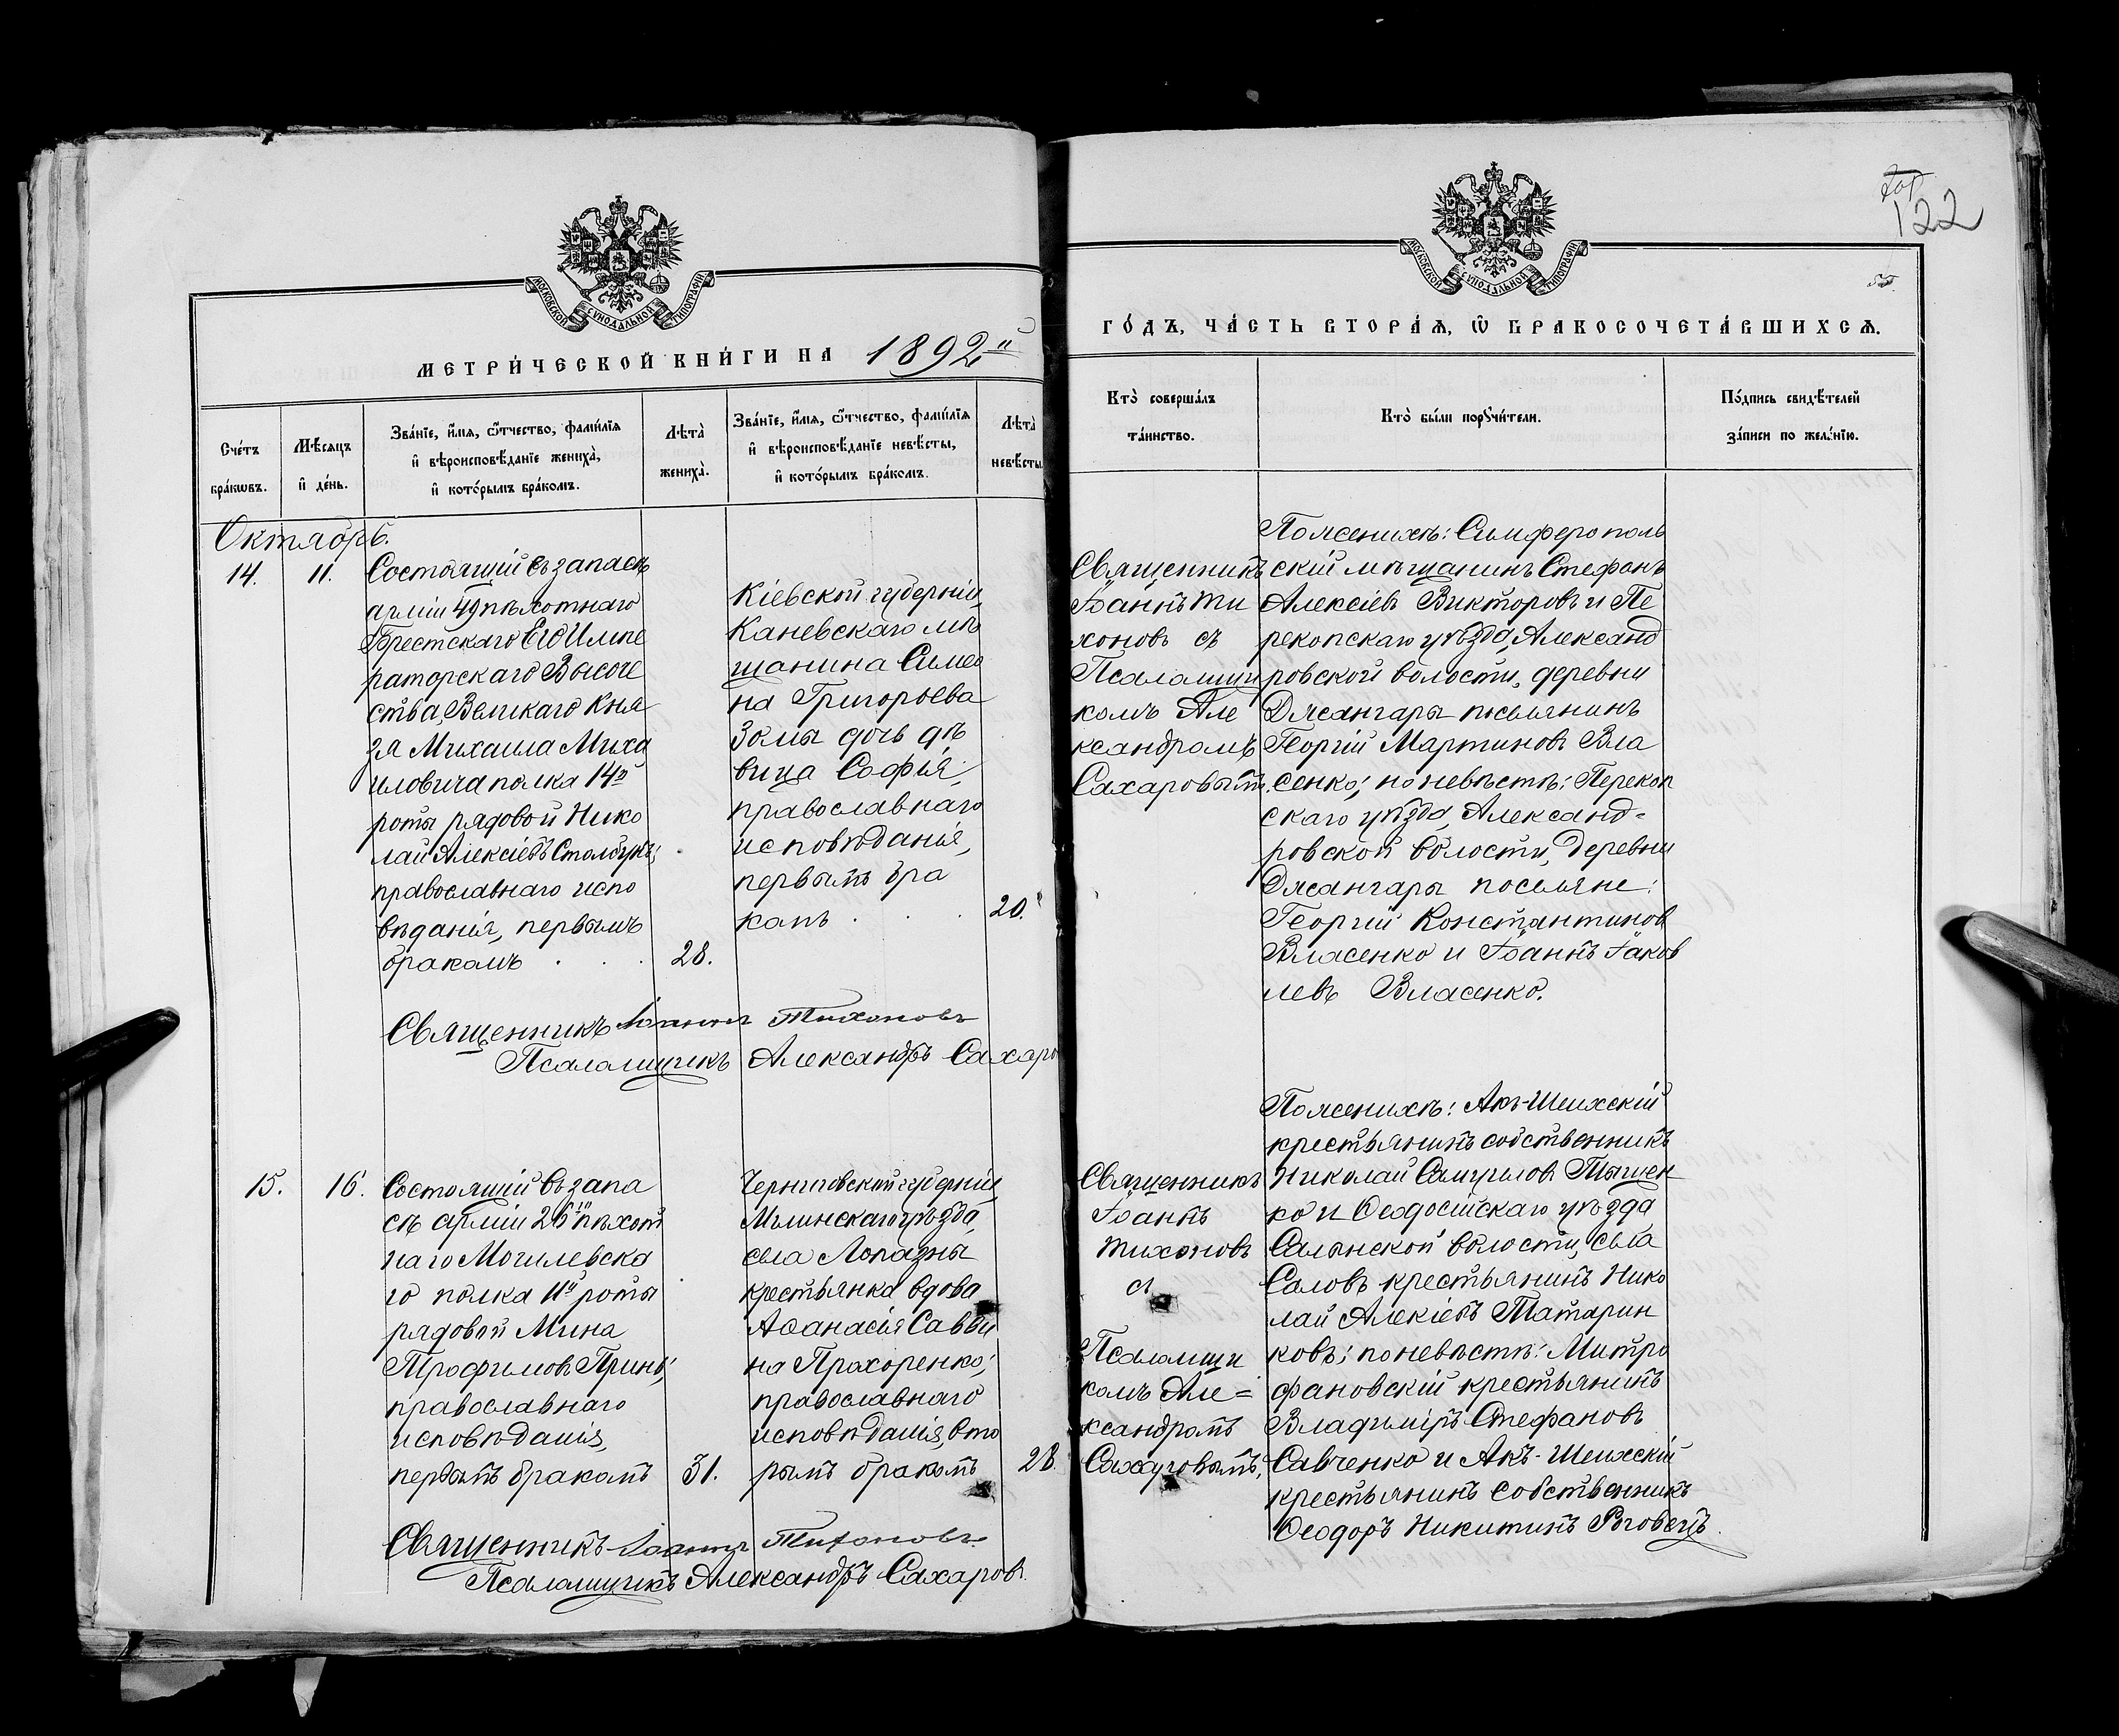 МОСКОВСКОЙ СѴНОДАЛЬНОЙ ТИПОГРАФІИ
МЕТРИ́ЧЕСКОЙ КНИ́ГИ НА 1892й
Сче́тъ бра́кѡвъ.
Мѣ́сѧцъ и҆ де́нь.
Зва́нїе, и҆́мѧ, ѻ҆́тчество, фами́лїѧ
и҆ вѣроисповѣ́данїе жениха̀,
и҆ кото́рымъ бра́комъ.
Лѣта̀ жениха̀.
Зва́нїе, и҆́мѧ, ѻ҆́тчество, фами́лїѧ
и҆ вѣроисповѣ́данїе невѣ́сты,
и҆ кото́рымъ бра́комъ.
Лѣта̀ невѣ́сты
Октябрь.
14.
11.
Состоящій въ запасѣ
арміи 49 пѣхотнаго
Брестскаго Его Импе
раторскаго Высоче
ства, Великаго Кня
зя Михаила Миха
иловича полка 14й
роты рядовой Нико
лай Алексіевъ
православнаго испо
вѣданія, первымъ
бракомъ . . .
28.
Кіевской губерніи,
Каневскаго мѣ
щанина Симео
на Григорьева
Зомы дочь дѣ
вица Софія,
православнаго
исповѣданія,
первымъ бра
комъ . . .
20.
Священникъ Іоаннъ Тихоновъ
Псаломщикъ Александръ Сахаро
15.
16.
Состоящій въ запа
сѣ арміи 26го пѣхот
наго Могилевска
го полка 11й роты
рядовой Мина
Трофимовъ Принь;
православнаго
исповѣданія,
первымъ бракомъ
31.
Черниговской губерніи
Мглинскаго уѣзда,
села Лопазны
крестьянка вдова
Аѳанасія Савви
на Прохоренко;
православнаго
исповѣданія, вто
рымъ бракомъ
28.
Священникъ Іоаннъ Тихоновъ
Псаломщикъ Александръ Сахаровъ
122
МОСКОВСКОЙ СѴНОДАЛЬНОЙ ТИПОГРАФІИ
ГО́ДЪ, ЧА́СТЬ ВТОРА́Ѧ, Ѡ҆ БРАКОСОЧЕТА́ВШИХСѦ.
Кто̀ соверша́лъ
та́инство.
Кто̀ бы́ли порꙋчи́тели.
По́дпись свидѣ́телей
за́писи по жела́нїю.
Священникъ
Іоаннъ Ти
хоновъ съ
Псаломщи
комъ Але
ксандромъ
Сахаровымъ.
По женихѣ: Симферополь
скій мѣщанинъ Стефанъ
Алексіевъ Викторовъ и Пе
рекопскаго уѣзда, Александ
ровской волости, деревни
Джангары поселянинъ
Георгій Мартиновъ Вла
сенко; по невѣстѣ: Перекоп
скаго уѣзда, Александ-
ровской волости, деревни
Джангары поселяне:
Георгій Константинов
Власенко и Іоаннъ Іаков
левъ Власенко.
Священникъ
Іоаннъ
Тихоновъ
съ
Псаломщи
комъ Але=
ксандромъ
Сахаровымъ,
По женихѣ: Акъ-Шеихскій
крестьянинъ собственникъ
Николай Самуиловъ Тышен
ко и Ѳеодосійскаго уѣзда
Салынской волости, села
Саловъ крестьянинъ Нико
лай Алексіевъ Татарин
ковъ; по невѣстѣ: Митро
фановскій крестьянинъ
Владиміръ Стефановъ
Савченко и Акъ-Шеихскій
крестьянинъ собственникъ
Ѳеодоръ Никитинъ Роговецъ.